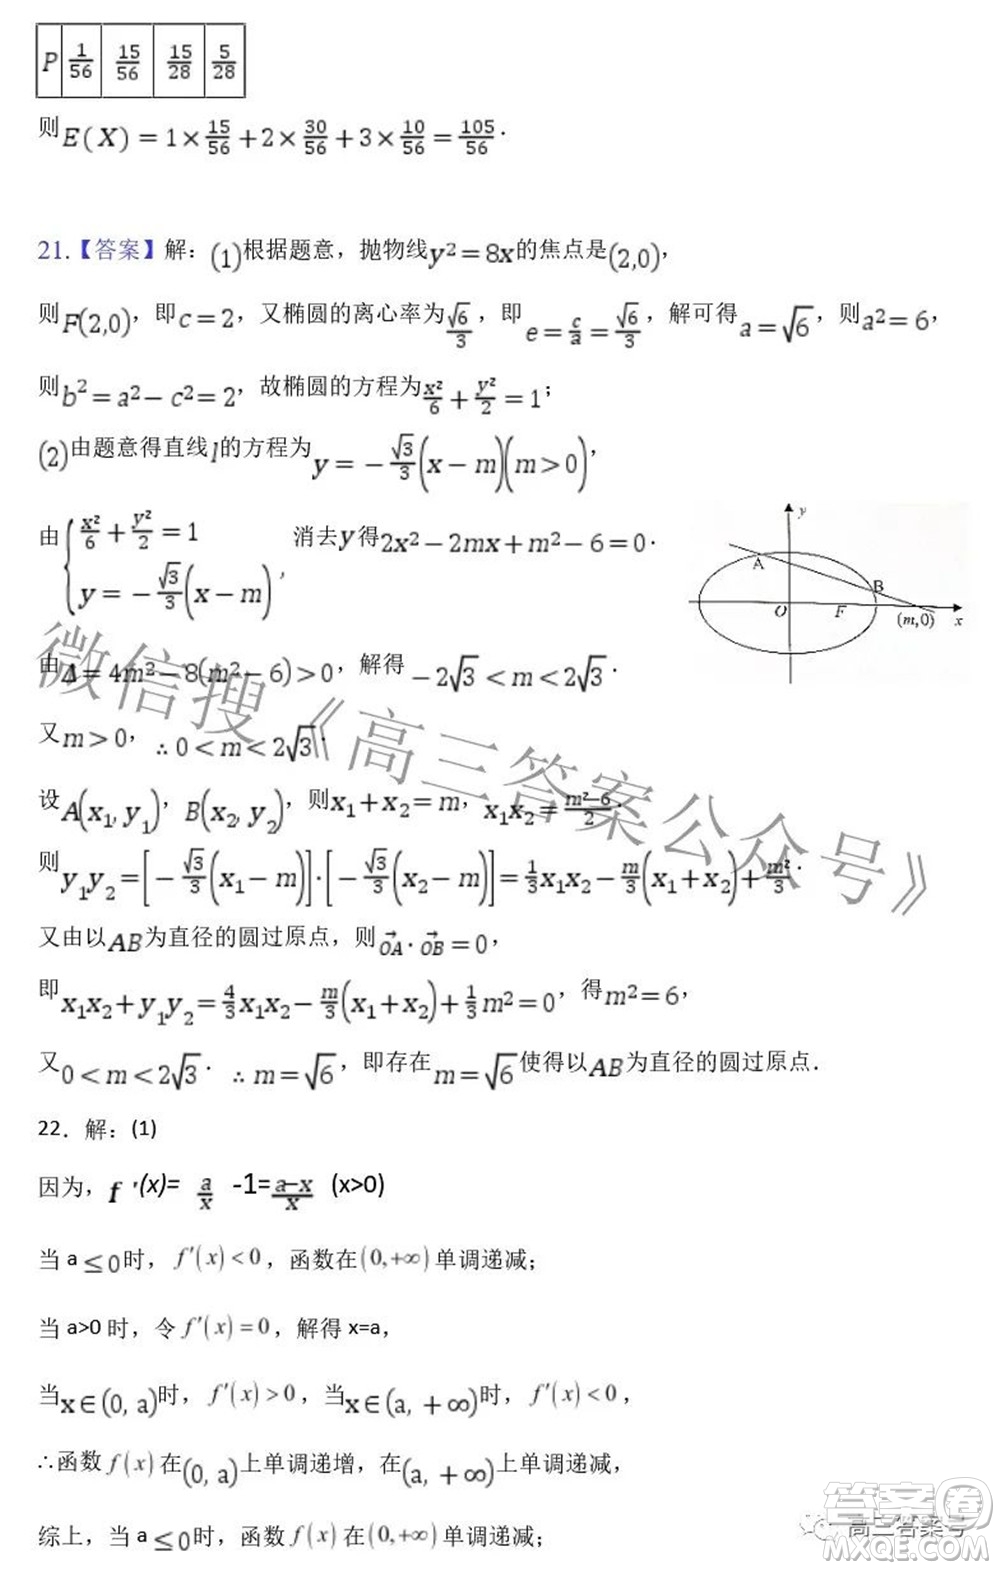 P 1/56 15/56 15/28 5/28
则E(X)=1×15/56+2×30/56+3×10/56=105/56.
21.【答案】解：(1)根据题意，抛物线y²=8x的焦点是(2,0)，
则F(2,0)，即c=2，又椭圆的离心率为√6/3，即e=c/a=√6/3，解可得a=√6，则a²=6，
则b²=a²−c²=2，故椭圆的方程为x²/6+y²/2=1；
(2)由题意得直线l的方程为y=−√3/3(x−m)(m>0)，
由{x²/6+y²/2=1
y=−√3/3(x−m)，消去y得2x²−2mx+m²−6=0.
y
A
B
O
F
(m,0)
x
由Δ=4m²−8(m²−6)>0，解得−2√3<m<2√3.
又m>0，∴0<m<2√3.
设A(x₁,y₁)，B(x₂,y₂)，则x₁+x₂=m，x₁x₂=(m²−6)/2.
则y₁y₂=[−√3/3(x₁−m)]·[−√3/3(x₂−m)]=1/3x₁x₂−m/3(x₁+x₂)+m²/3.
又由以AB为直径的圆过原点，则OA⃗·OB⃗=0，
即x₁x₂+y₁y₂=4/3x₁x₂−m/3(x₁+x₂)+1/3m²=0，得m²=6，
又0<m<2√3. ∴m=√6，即存在m=√6使得以AB为直径的圆过原点.
22．解：(1)
因为，f '(x)= a/x -1=(a−x)/x (x>0)
当 a≤0时，f′(x)<0，函数在(0,+∞)单调递减；
当 a>0 时，令f′(x)=0，解得 x=a，
当x∈(0, a)时，f′(x)>0，当x∈(a, +∞)时，f′(x)<0，
∴函数f(x)在(0, a)上单调递增，在(a, +∞)上单调递减，
综上，当 a≤0时，函数f(x)在(0,+∞)单调递减；
微信搜《高三答案公众号》
高三答案号
答案卷
MXQE.COM